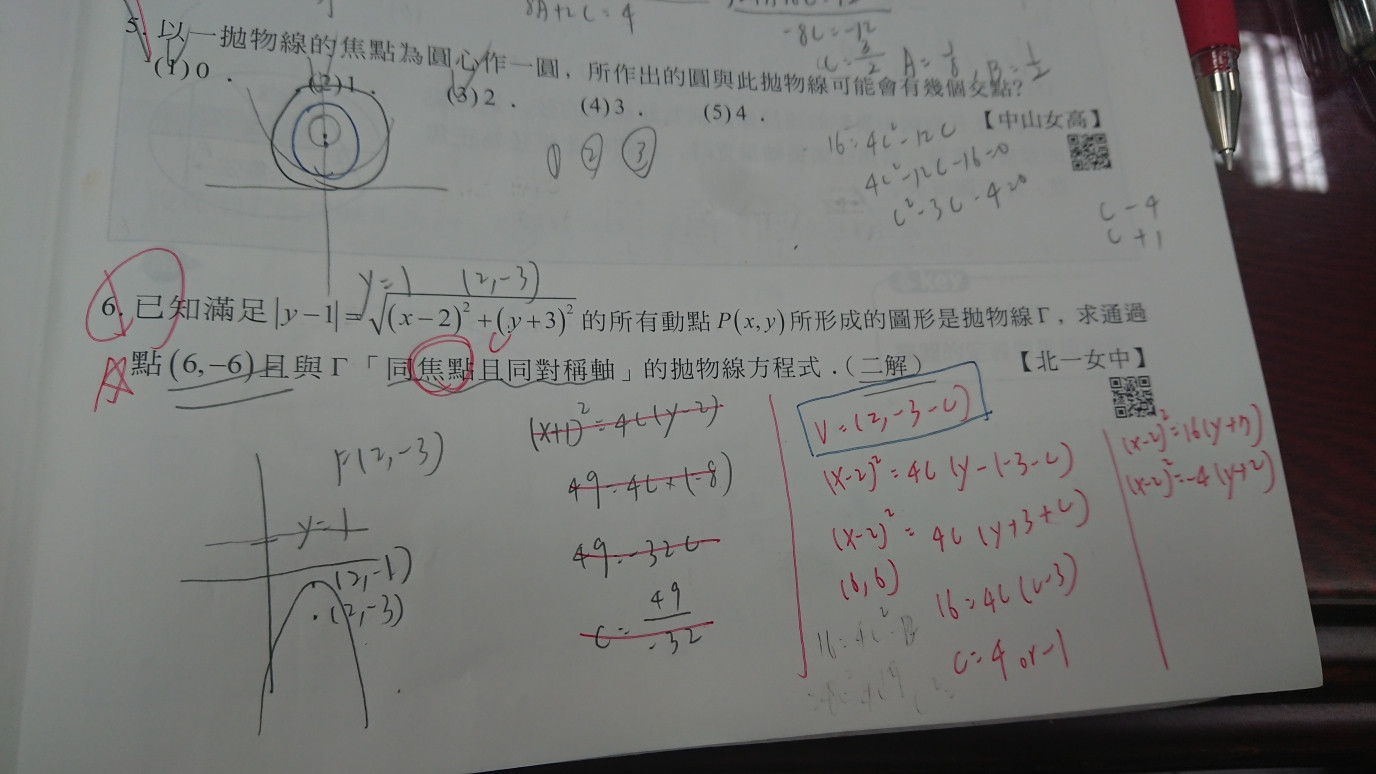 8A+2C=4
-8C=-12
C=3/2 A=1/8, B=1/2
5. 以一拋物線的焦點為圓心作一圓，所作出的圓與此拋物線可能會有幾個交點?
(1)0． (2)1． (3)2． (4)3． (5)4．
【中山女高】
① ② ③
16=4c²-12c
4c²-12c-16=0
c²-3c-4=0
c -4
c +1
y=1 (2,-3)
6. 已知滿足|y-1|=√((x-2)²+(y+3)²)的所有動點P(x,y)所形成的圖形是拋物線Γ，求通過
點(6,-6)且與Γ「同焦點且同對稱軸」的拋物線方程式．(二解)
【北一女中】
c
F(2,-3)
y=1
(2,-1)
(2,-3)
(x+1)²=4c(y-2)
49=4c×(-8)
49=-32c
c=49/-32
V=(2,-3-c)
(x-2)²=4c(y-(-3-c)
(x-2)²=4c(y+3+c)
(6,6)
16=4c(c-3)
c=4 or -1
(x-2)²=16(y+7)
(x-2)²=-4(y+2)